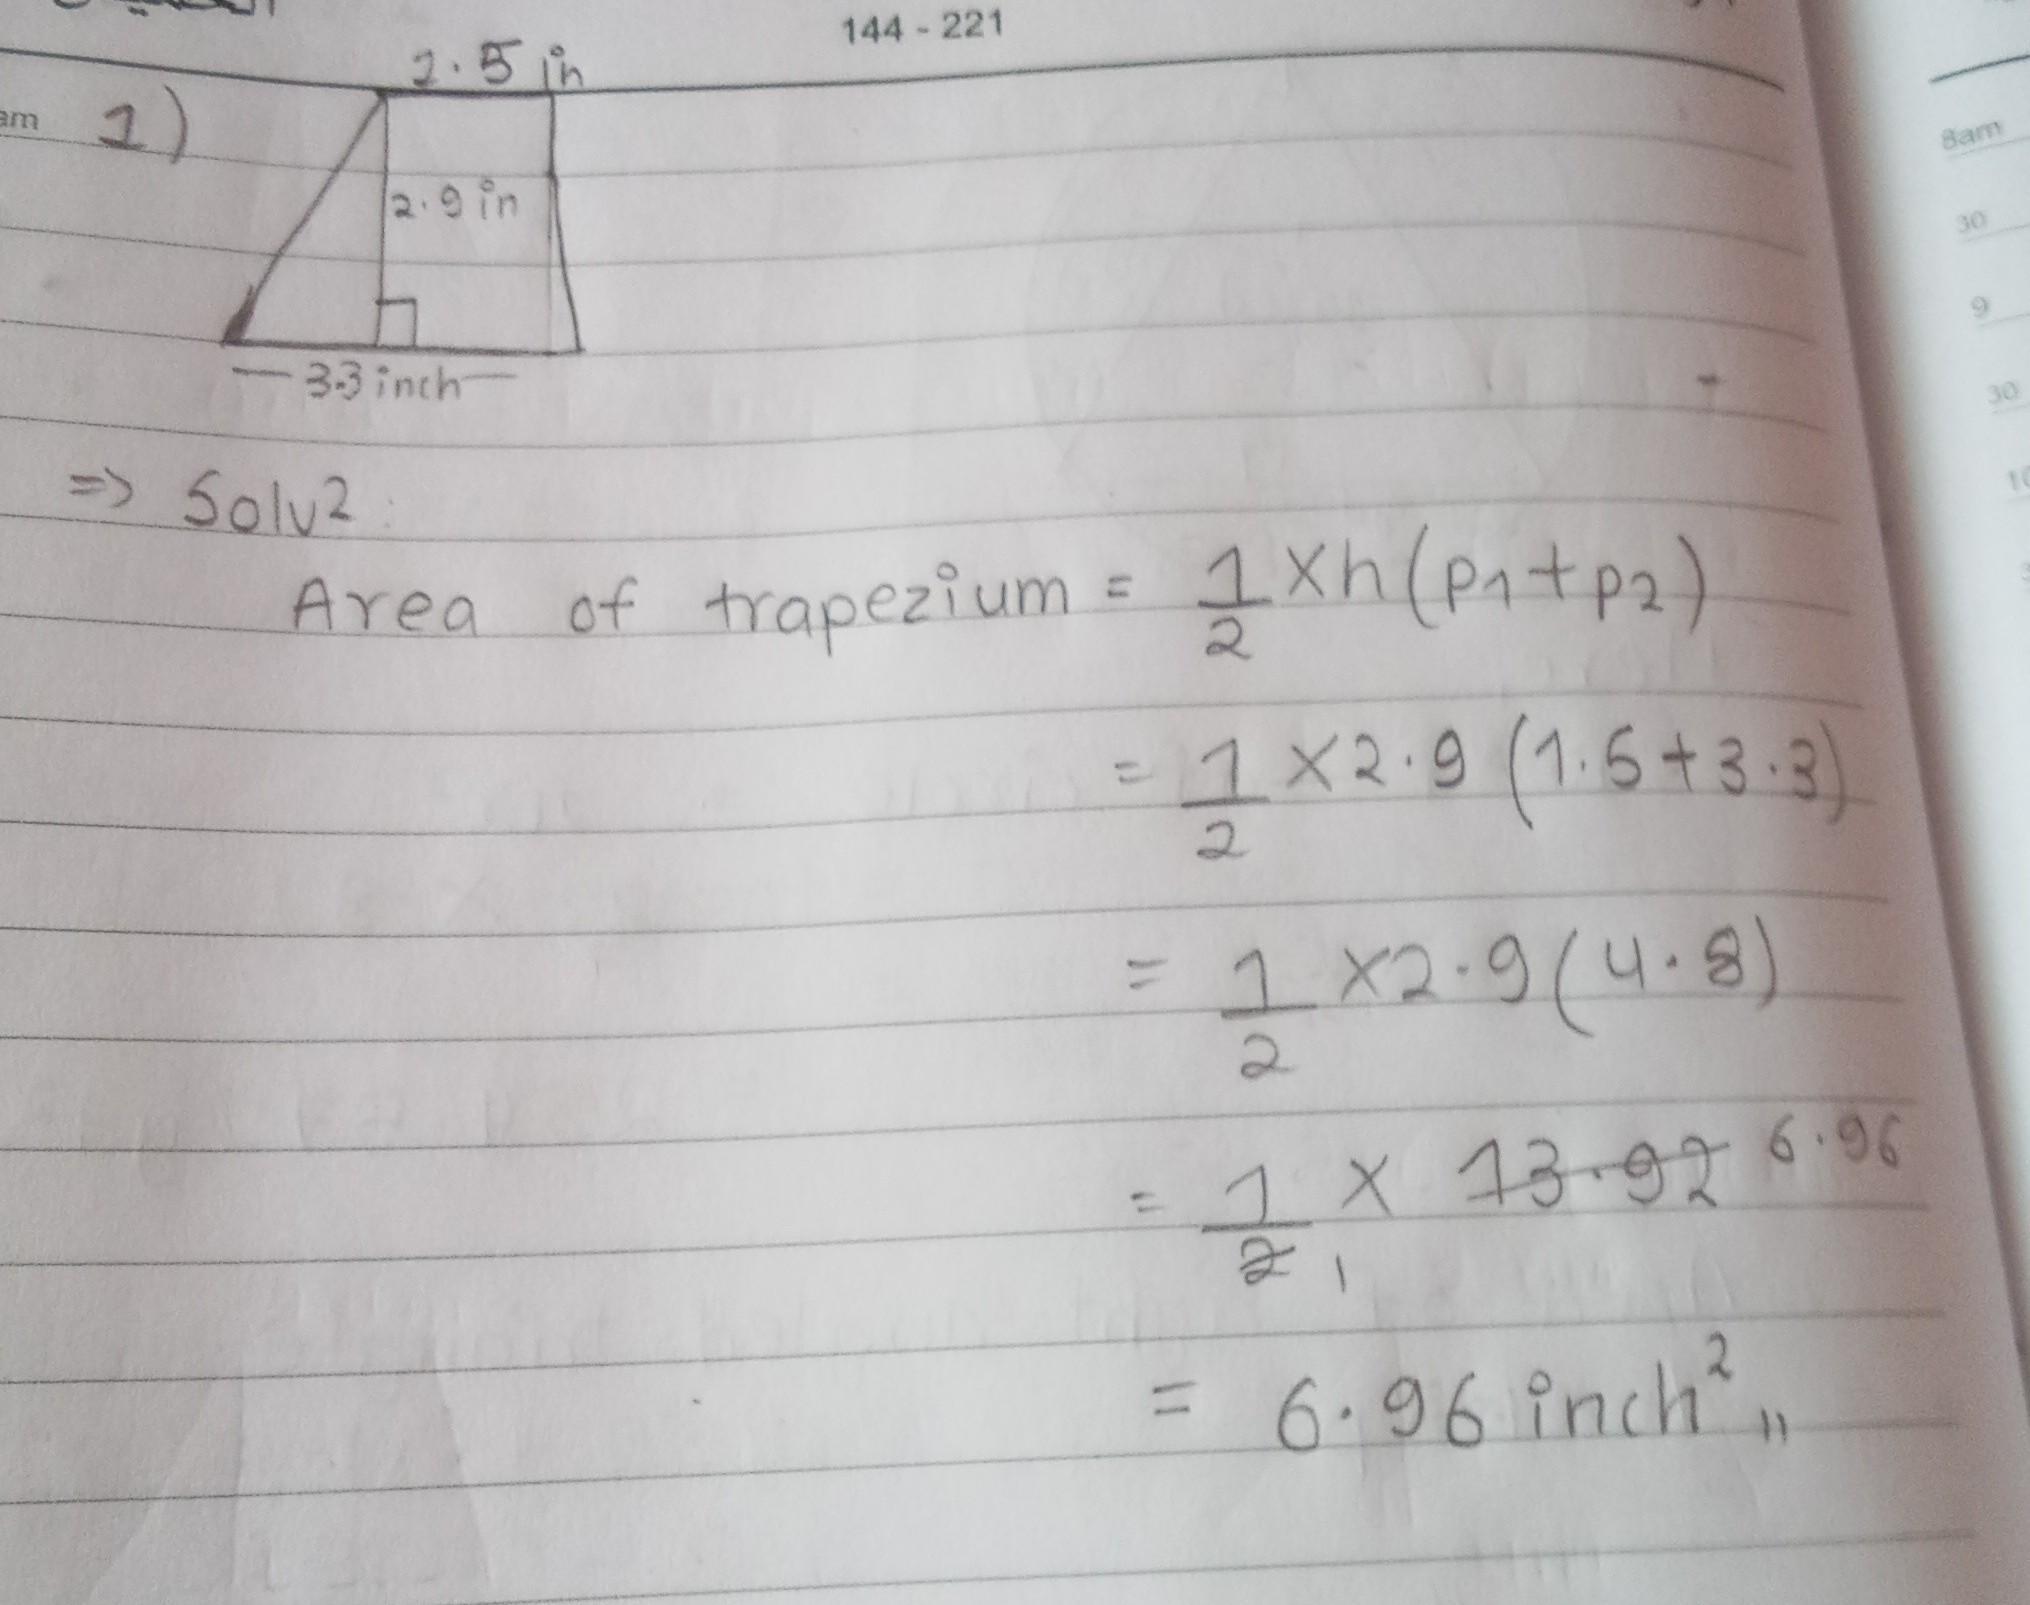 144 - 221
1.5 in
am 1)
8am
2.9 in
30
9
3.3 inch
30
=> Solv2:
Area of trapezium = 1/2 × h (p1 + p2)
= 1/2 × 2.9 (1.5 + 3.3)
= 1/2 × 2.9 (4.8)
= 1/2 1 × 13.92 6.96
= 6.96 inch² "